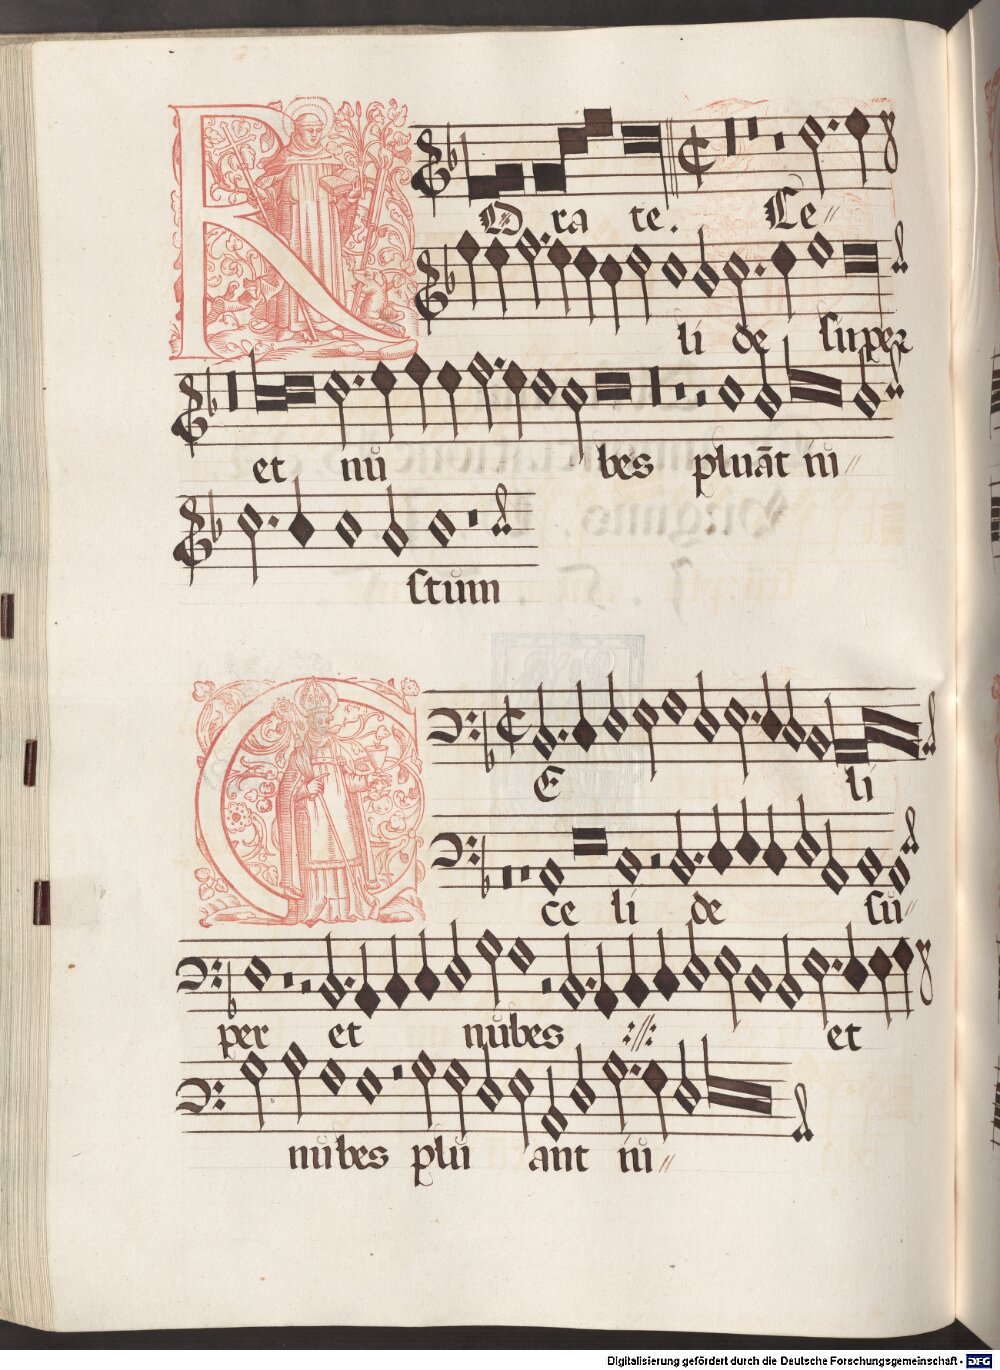 RO ra te. Ce//
li de super
et nu bes pluāt iu//
stum
CE li
ce li de su//
per et nubes ://: et
nubes plu ant iu//
Digitalisierung gefördert durch die Deutsche Forschungsgemeinschaft - DFG